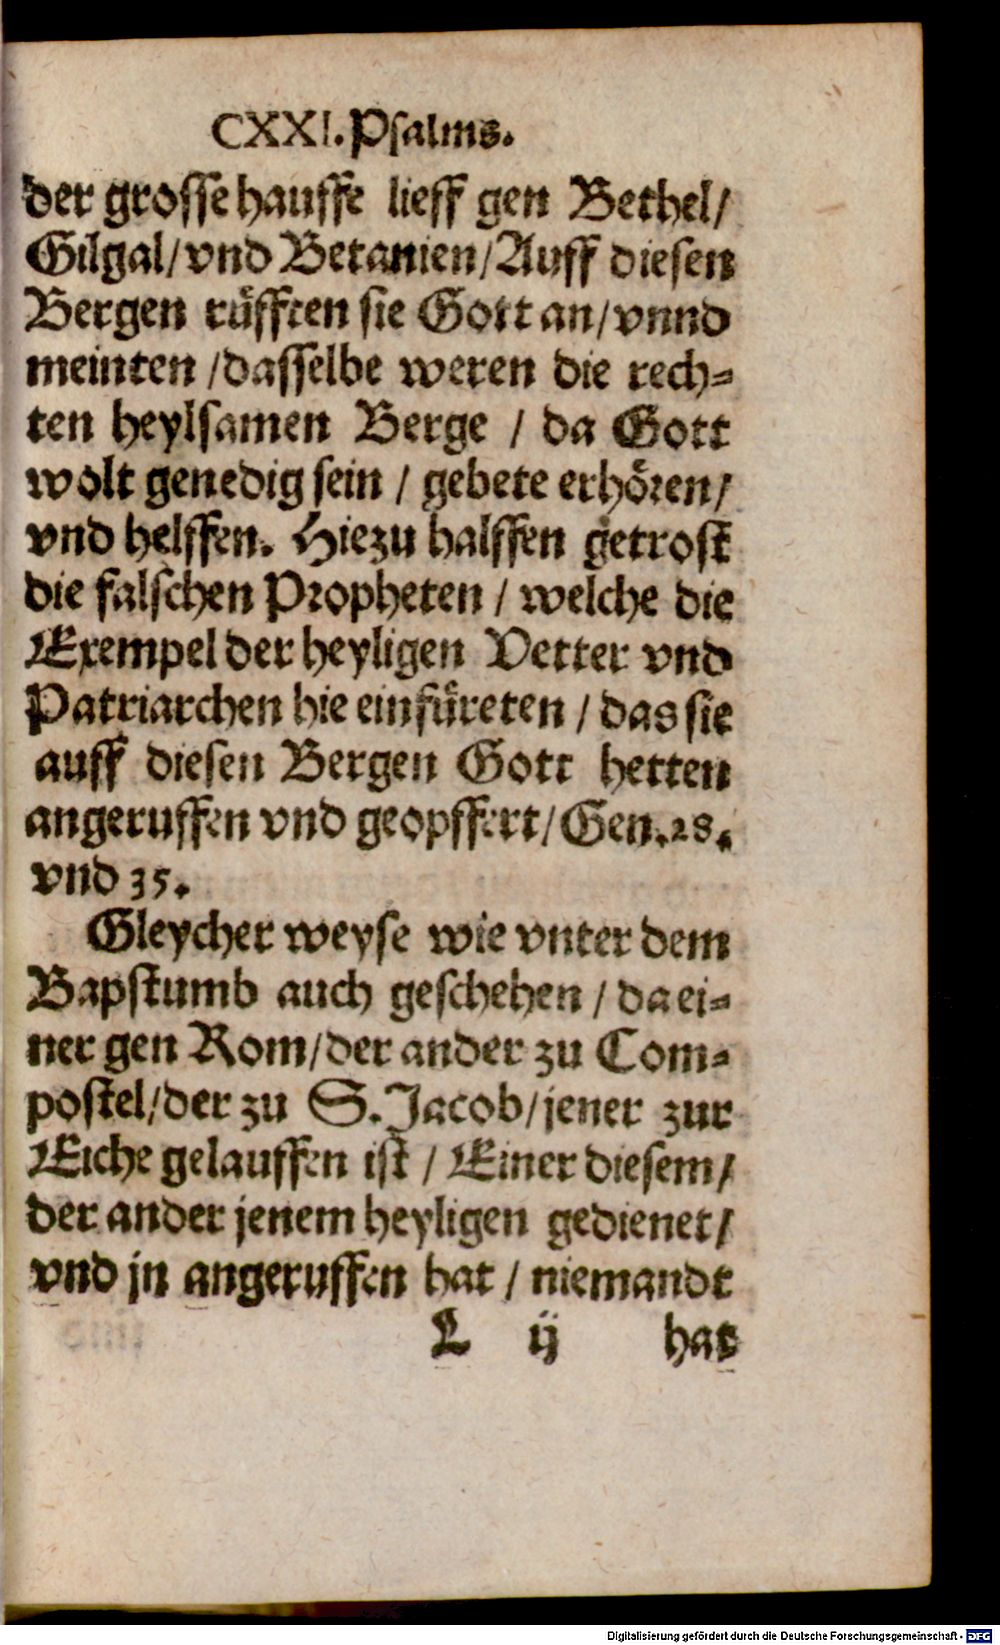 CXXI. Psalms.
der grosse hauffe lieff gen Bethel/
Gilgal/vnd Betanien/Auff diesen
Bergen rüfften sie Gott an/vnnd
meinten /dasselbe weren die rech-
ten heylsamen Berge / da Gott
wolt genedig sein / gebete erhören/
vnd helffen. Hiezu halffen getrost
die falschen Propheten / welche die
Exempel der heyligen Vetter vnd
Patriarchen hie einfüreten / das sie
auff diesen Bergen Gott hetten
angeruffen vnd geopffert/Gen.28.
vnd 35.
Gleycher weyse wie vnter dem
Bapstumb auch geschehen / da ei-
ner gen Rom/der ander zu Com-
postel/der zu S. Jacob/jener zur
Eiche gelauffen ist / Einer diesem/
der ander jenem heyligen gedienet/
vnd jn angeruffen hat / niemandt
L ij hat
Digitalisierung gefördert durch die Deutsche Forschungsgemeinschaft - DFG